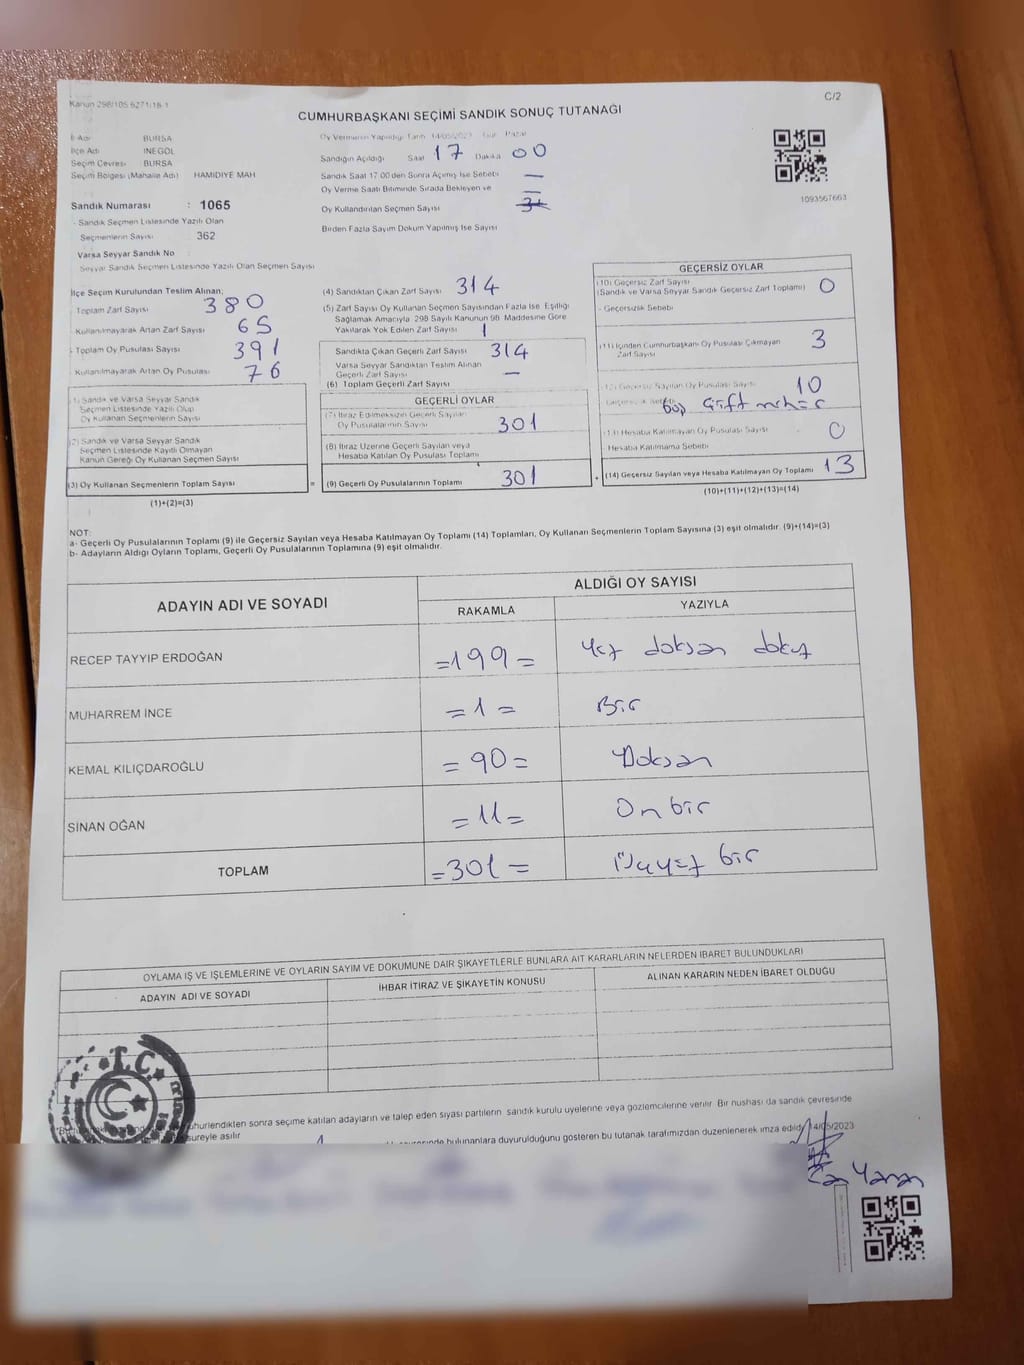 Kanun 298/105 6271/18-1
C/2
CUMHURBAŞKANI SEÇİMİ SANDIK SONUÇ TUTANAĞI
İl Adı BURSA
İlçe Adı İNEGÖL
Seçim Çevresi BURSA
Seçim Bölgesi (Mahalle Adı) HAMİDİYE MAH
Sandık Numarası : 1065
Sandık Seçmen Listesinde Yazılı Olan
Seçmenlerin Sayısı 362
Varsa Seyyar Sandık No
Seyyar Sandık Seçmen Listesinde Yazılı Olan Seçmen Sayısı
Oy Vermenin Yapıldığı Tarih 14/05/2023 Gün Pazar
Sandığın Açıldığı Saat 17 Dakika 00
Sandık Saat 17.00'den Sonra Açılmış İse Sebebi —
Oy Verme Saati Bitiminde Sırada Bekleyen ve
Oy Kullandırılan Seçmen Sayısı
Birden Fazla Sayım Döküm Yapılmış İse Sayısı
1093567663
İlçe Seçim Kurulundan Teslim Alınan;
Toplam Zarf Sayısı 380
Kullanılmayarak Artan Zarf Sayısı 65
Toplam Oy Pusulası Sayısı 391
Kullanılmayarak Artan Oy Pusulası 76
(1) Sandık ve Varsa Seyyar Sandık
Seçmen Listesinde Yazılı Olup
Oy Kullanan Seçmenlerin Sayısı
(2) Sandık ve Varsa Seyyar Sandık
Seçmen Listesinde Kayıtlı Olmayan
Kanun Gereği Oy Kullanan Seçmen Sayısı
(3) Oy Kullanan Seçmenlerin Toplam Sayısı
(1)+(2)=(3)
(4) Sandıktan Çıkan Zarf Sayısı 314
(5) Zarf Sayısı Oy Kullanan Seçmen Sayısından Fazla İse Eşitliği
Sağlamak Amacıyla 298 Sayılı Kanunun 98. Maddesine Göre
Yakılarak Yok Edilen Zarf Sayısı 1
Sandıkta Çıkan Geçerli Zarf Sayısı 314
Varsa Seyyar Sandıktan Teslim Alınan
Geçerli Zarf Sayısı —
(6) Toplam Geçerli Zarf Sayısı
GEÇERLİ OYLAR
(7) İtiraz Edilmeksizin Geçerli Sayılan
Oy Pusulasının Sayısı 301
(8) İtiraz Üzerine Geçerli Sayılan veya
Hesaba Katılan Oy Pusulası Toplamı
= (9) Geçerli Oy Pusulalarının Toplamı 301
GEÇERSİZ OYLAR
(10) Geçersiz Zarf Sayısı
(Sandık ve Varsa Seyyar Sandık Geçersiz Zarf Toplamı) 0
Geçersizlik Sebebi
(11) İçinden Cumhurbaşkanı Oy Pusulası Çıkmayan
Zarf Sayısı 3
(12) Geçersiz Sayılan Oy Pusulası Sayısı 10
Geçersizlik Sebebi
(13) Hesaba Katılmayan Oy Pusulası Sayısı 0
Hesaba Katılmama Sebebi
+ (14) Geçersiz Sayılan veya Hesaba Katılmayan Oy Toplamı 13
(10)+(11)+(12)+(13)=(14)
NOT:
a- Geçerli Oy Pusulalarının Toplamı (9) ile Geçersiz Sayılan veya Hesaba Katılmayan Oy Toplamı (14) Toplamları, Oy Kullanan Seçmenlerin Toplam Sayısına (3) eşit olmalıdır. (9)+(14)=(3)
b- Adayların Aldığı Oyların Toplamı, Geçerli Oy Pusulalarının Toplamına (9) eşit olmalıdır.
ADAYIN ADI VE SOYADI
ALDIĞI OY SAYISI
RAKAMLA YAZIYLA
RECEP TAYYİP ERDOĞAN =199= Yüz doksan dokuz
MUHARREM İNCE =1= Bir
KEMAL KILIÇDAROĞLU =90= Doksan
SİNAN OĞAN =11= On bir
TOPLAM =301= Üçyüz bir
OYLAMA İŞ VE İŞLEMLERİNE VE OYLARIN SAYIM VE DÖKÜMÜNE DAİR ŞİKAYETLERLE BUNLARA AİT KARARLARIN NELERDEN İBARET BULUNDUKLARI
ADAYIN ADI VE SOYADI İHBAR İTİRAZ VE ŞİKAYETİN KONUSU ALINAN KARARIN NEDEN İBARET OLDUĞU
T.C.
sonra seçime katılan adayların ve talep eden siyasi partilerin sandık kurulu üyelerine veya gözlemcilerine verilir. Bir nüshası da sandık çevresinde
süreyle asılır
bulunanlara duyurulduğunu gösteren bu tutanak tarafımızdan düzenlenerek imza edildi 14/05/2023